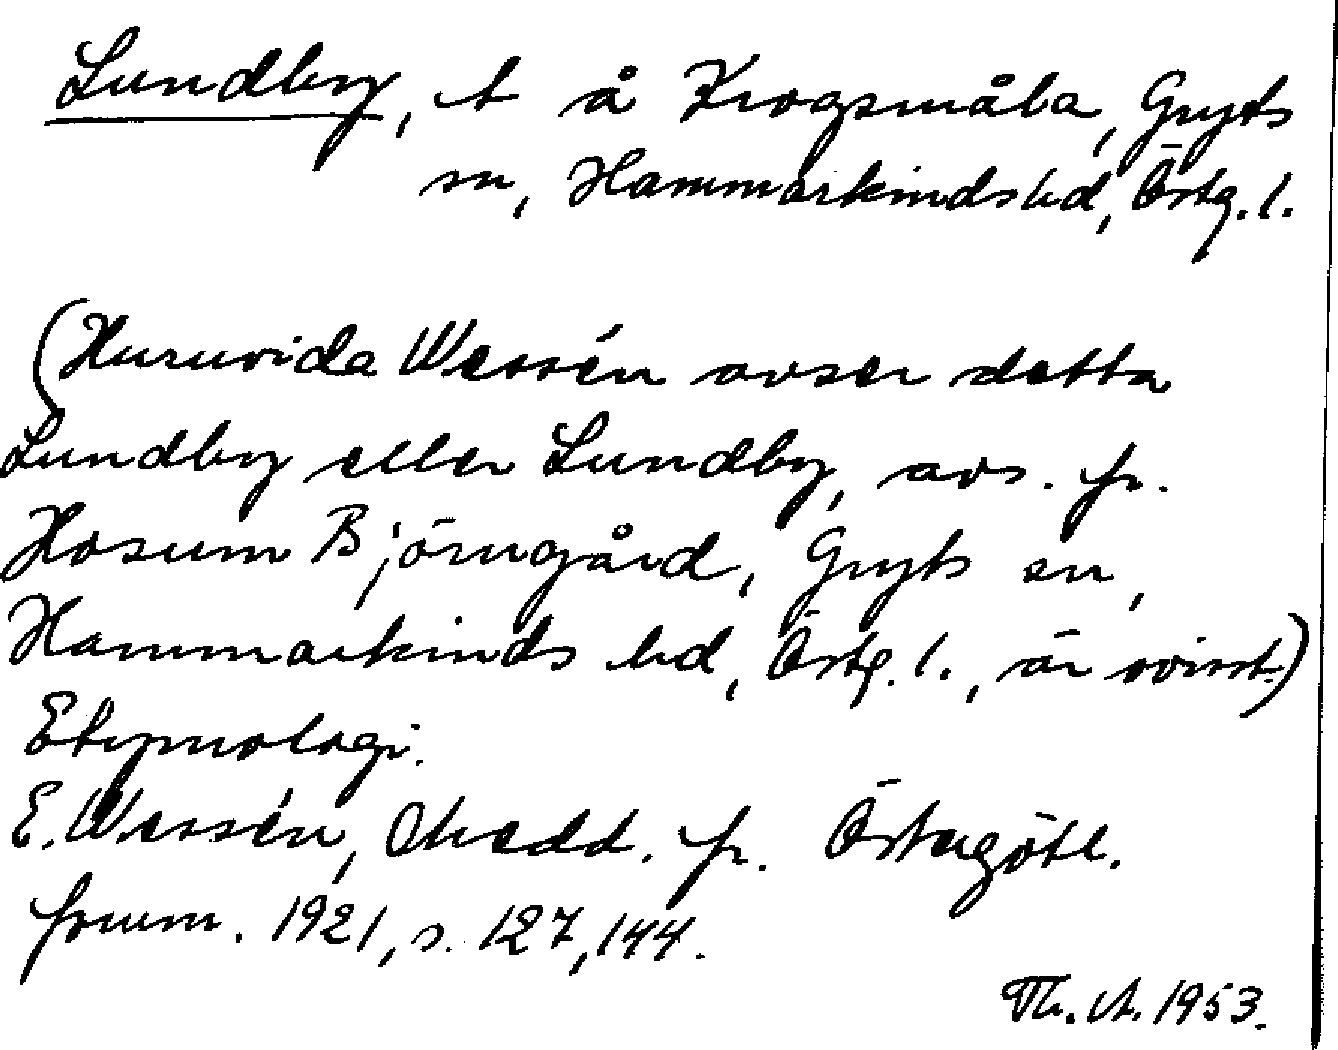 Lundby, t å Krogsmåla, Gryts
sn, Hammarkinds hd, Östg. l.
(Huruvida Wessén avser detta
Lundby eller Lundby, avs. fr.
Hosum Björngård, Gryts sn,
Hammarkinds hd, Östg. l., är ovisst.)
Etymologi.
E. Wessén, Medd. fr. Östergötl.
fornm. 1921, s. 127, 144.
Th. A. 1953.